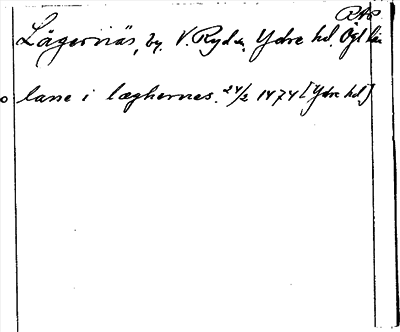 RAP
Lägernäs, by. V. Ryd sn, Ydre hd, Ögl län
lasse i læghernes. 24/2 1474 [Ydre hd]